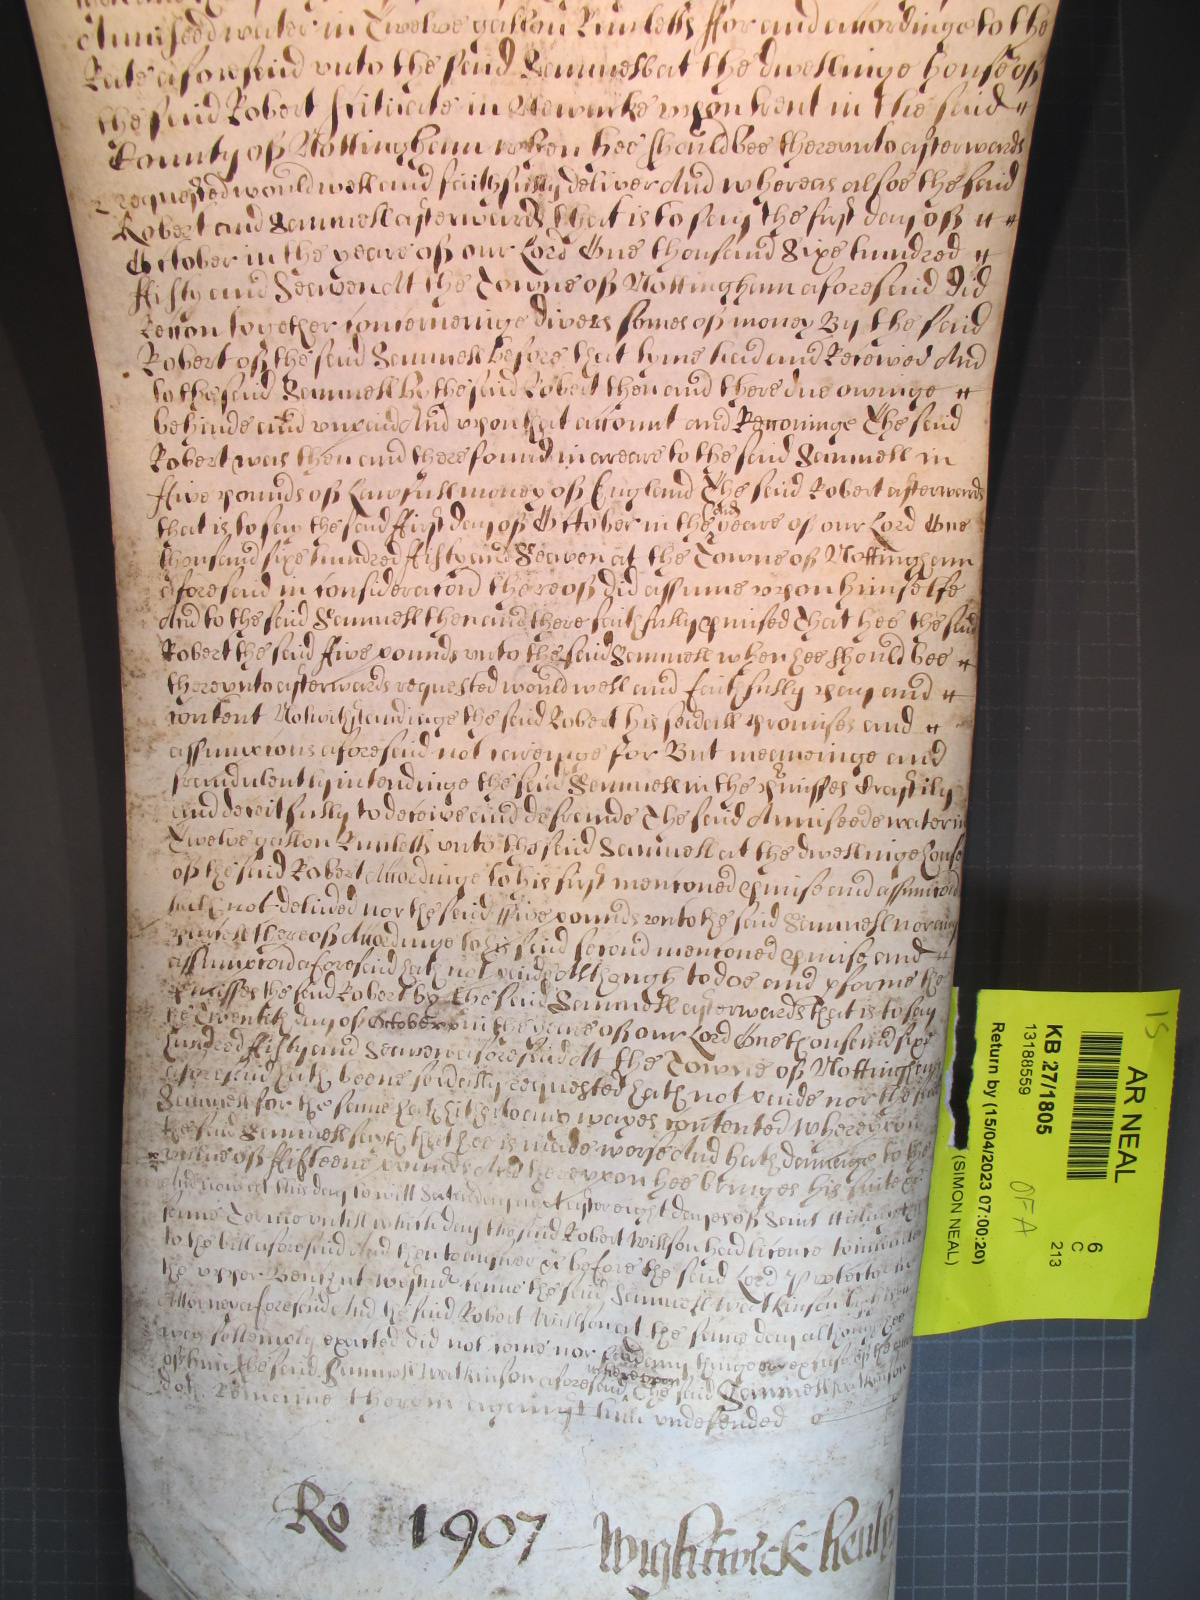 Anniseed water in Twelve gallon Runletts ffor and accordinge to the
Rate aforesaid unto the said Samuell att the dwellinge house of
the said Robert Scituate in Newarke upon Trent in the said
County of Nottingham when hee should bee thereunto afterwards
requested would well and faithfully deliver And whereas alsoe the said
Robert and Samuell afterwards that is to say the first day of
October in the yeare of our Lord One thousand Sixe hundred
ffifty and Seaven Att the Towne of Nottingham aforesaid did
Reccon together concerneinge divers somes of money By the said
Robert of the said Samuell before that tyme had and Received And
to the said Samuell by the said Robert then and there due owinge
behinde and unpaid And upon that accompt and Reconinge The said
Robert was then and there found in arreare to the said Samuell in
ffive pounds of Lawfull money of England The said Robert afterwards
that is to say the said ffirst day of October in the said yeare of our Lord One
thousand sixe hundred ffifty and Seaven at the Towne of Nottingham
aforesaid in consideracon thereof did assume upon himselfe
And to the said Samuell then and there faithfully pmised That hee the said
Robert the said ffive pounds unto the said Samuell when hee should bee
thereunto afterwards requested would well and faithfully pay and
content Notwithstandinge the said Robert his severall promises and
assumpcons aforesaid not careinge for But meaneinge and
fraudulently intendinge the said Samuell in the pmisses Craftily
and deceitfully to deceive and defraude The said Anniseede water in
Twelve gallon Runletts unto the said Samuell at the dwellinge house
of the said Robert Accordinge to his first mencioned pmise and assumpcon
hath not delived nor the said ffive pounds unto the said Samuell nor any
parcell thereof Accordinge to his said second mencioned pmise and
assumpcon aforesaid hath not paide Although to doe and pforme the
pmisses the said Robert by the said Samuell afterwards that is to say
the Twentith day of October in the yeare of our Lord One thousand sixe
hundred ffifty and Seaven aforesaid Att the Towne of Nottingham
aforesaid hath beene severally requested hath not paide nor the said
Samuell for the same hath hitherto any wayes contented whereupon
the said Samuell sayth that hee is made worse And hath damage to the
value of ffifteene pounds And thereupon hee bringes his suite &c
And now at this day to witt Saturday next after eight dayes of Saint
same Terme untill which day the said Robert Willson had licence to imparle
to the bill aforesaid And then to answer &c before the said Lord Protector
the upper Bench at Westmr came the said Samuell Watkinson by his
Attorney aforesaid And the said Robert Willson at the same day although hee
was sollemnly exacted did not come nor said any thinge
of him the said Samuell Watkinson aforesaid whereupon The said Samuell Watkinson
doth remaine therein against him undefended
Ro 1907 Wightwick henly
AR NEAL
KB 27/1805
13188559
Return by (15/04/2023 07:00:20)
(SIMON NEAL)
6
C
213
OFA
15